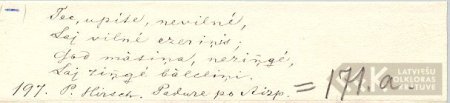 Tec, upīte, nevilnē,
Laj vilnē ezeriņis;
Dod māsiņa, neziņģē,
Laj ziņģē bāleliņi.
197. P. Hirsch, Padure po Aizp. = 171.a.
LATVIEŠU
FOLKLORAS
KRĀTUVE